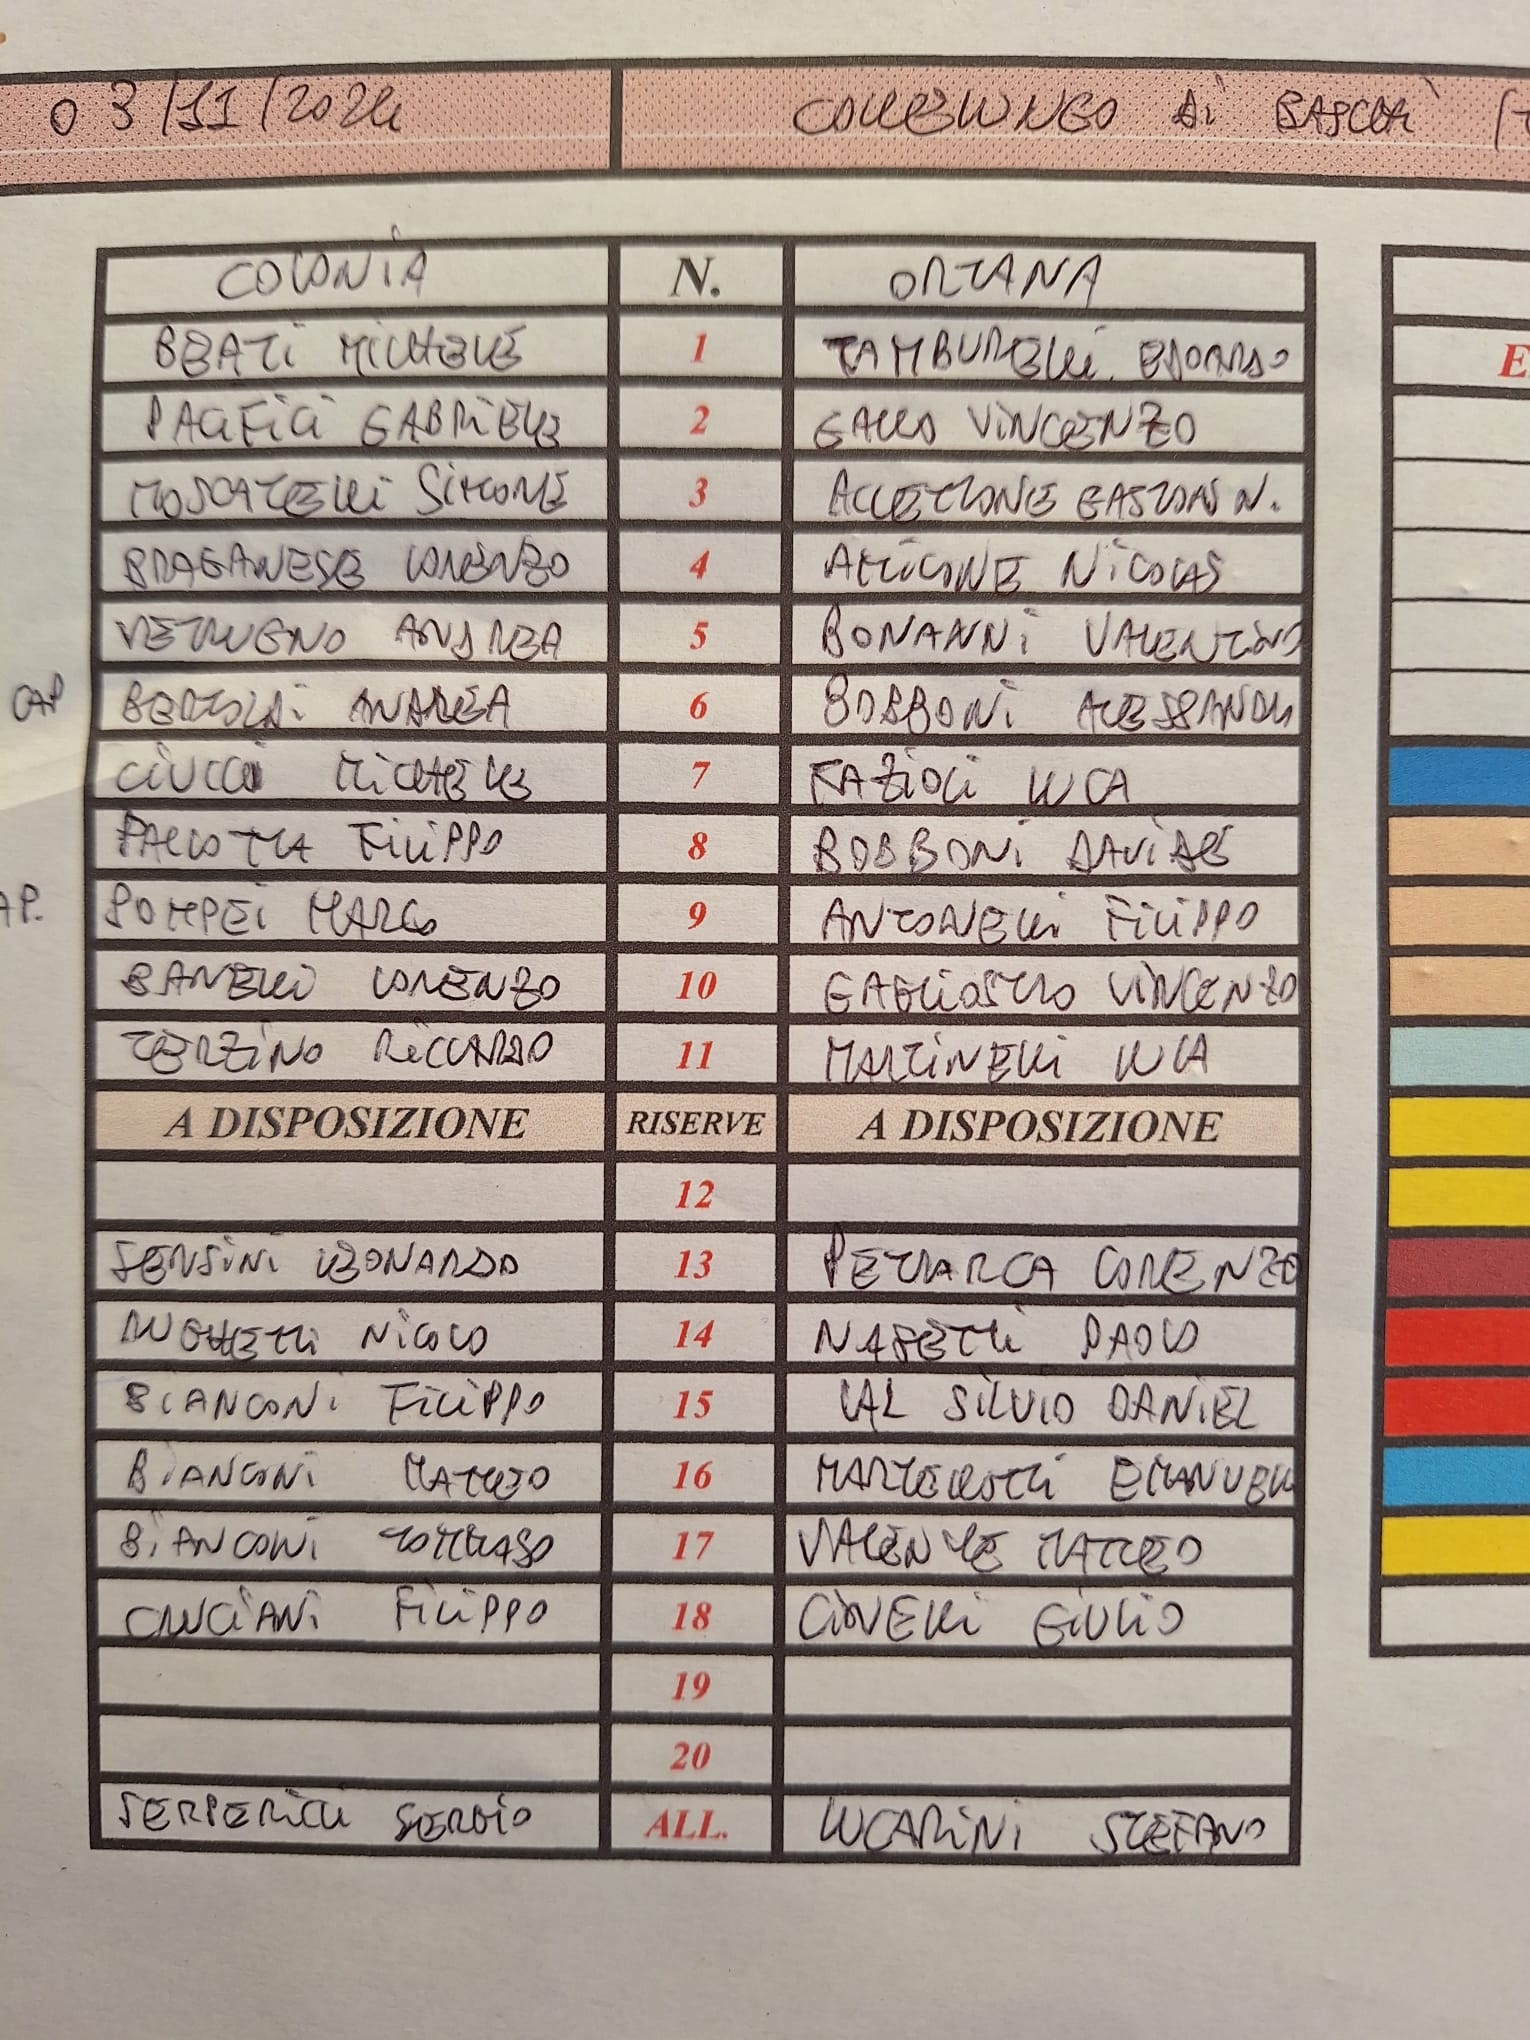 03/11/2024 COLLELUNGO di BASCHI
COLONIA N. ORTANA
BEATI MICHELE 1 TAMBURELLI EDOARDO
PACIFICI GABRIELE 2 GALLO VINCENZO
MOSCATELLI SIMONE 3 ACCETTONE GASTON N.
BRAGANESE LORENZO 4 AMICONE NICOLAS
VETRUGNO ANDREA 5 BONANNI VALENTINO
CAP BERTOLDI ANDREA 6 BOBBONI ALESSANDRO
CIUCCI MICHELE 7 FAZIOLI LUCA
PALLOTTA FILIPPO 8 BOBBONI DAVIDE
AP. POMPEI MARCO 9 ANTONELLI FILIPPO
BANELLI LORENZO 10 GAGLIOSTRO VINCENZO
TERZINO RICCARDO 11 MARTINELLI LUCA
A DISPOSIZIONE RISERVE A DISPOSIZIONE
12
SENSINI LEONARDO 13 PETRARCA LORENZO
NICOLO 14 PAOLO
BIANCONI FILIPPO 15 LAL SILVIO DANIEL
BIANCONI MATTEO 16 MARTELLOTTI EMANUELE
BIANCONI TOMMASO 17 VALENTE MATTEO
FILIPPO 18 CIONELLI GIULIO
19
20
SERPERICI SERGIO ALL. LUCARINI STEFANO